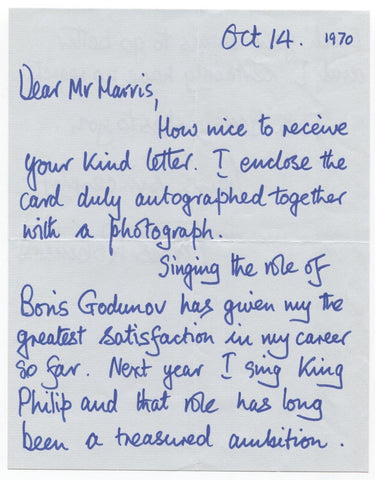 Oct 14. 1970
Dear Mr Harris,
How nice to receive
your kind letter. I enclose the
card duly autographed together
with a photograph.
Singing the role of
Boris Godunov has given my the
greatest satisfaction in my career
so far. Next year I sing King
Philip and that role has long
been a treasured ambition.